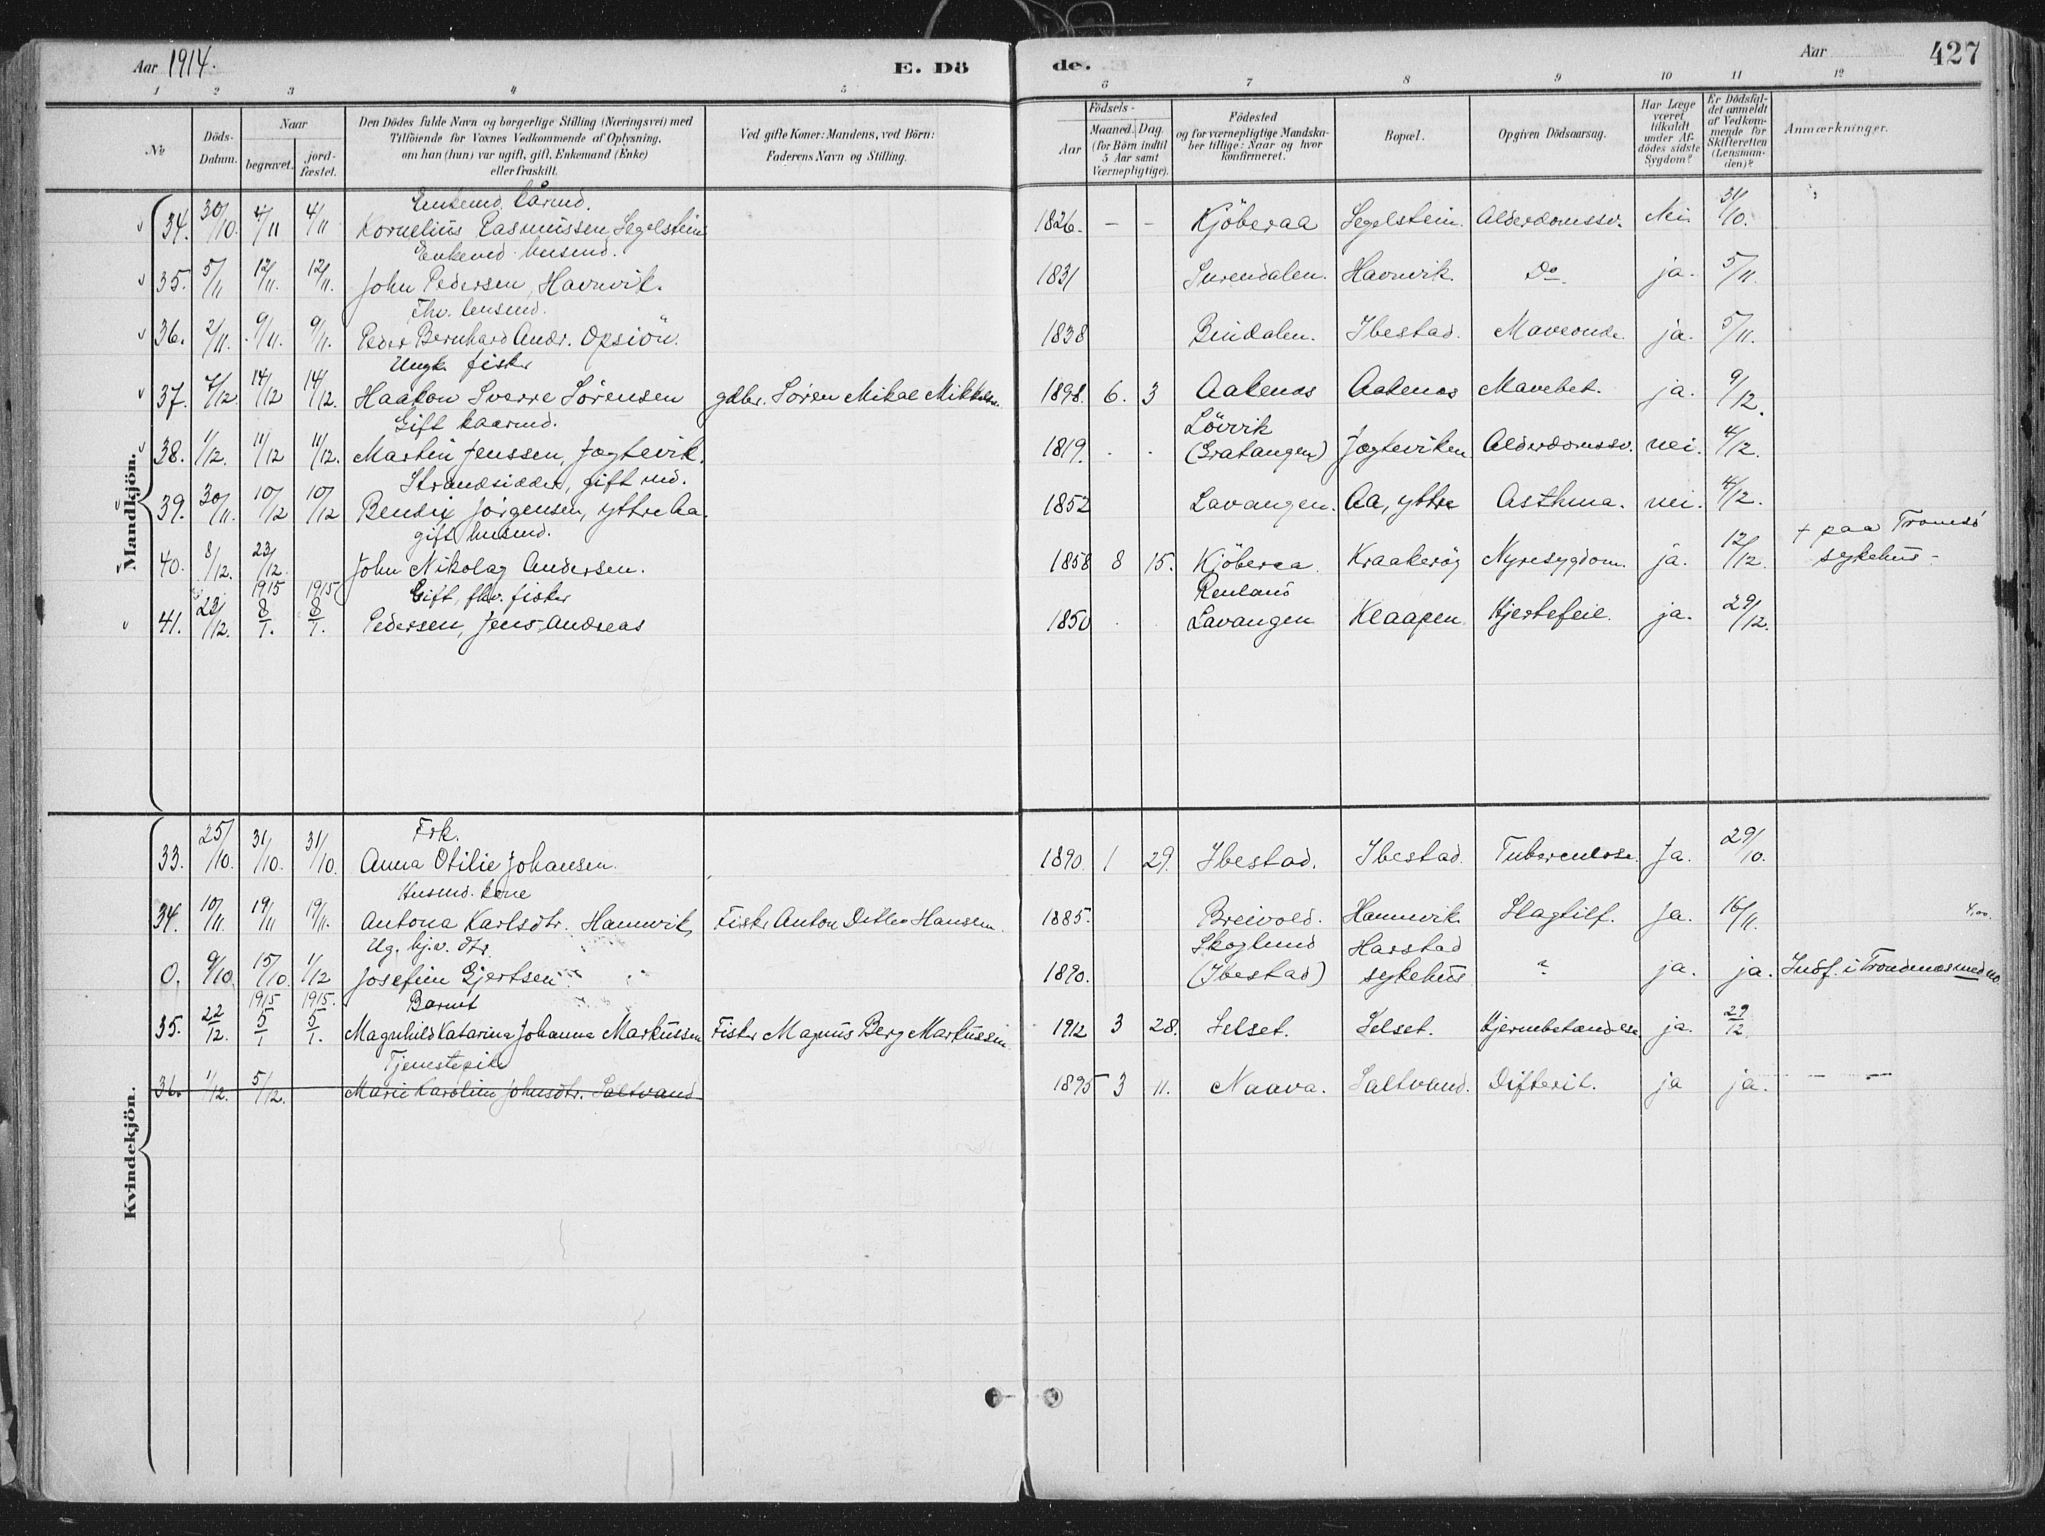 Aar 1914. E. Dö de. Aar 427
1 2 3 4 5 6 7 8 9 10 11 12
No Döds-Datum. Naar begravet. jord-fæstet. Den Dödes fulde Navn og borgerlige Stilling (Næringsvei) med Tilföiende for Voxnes Vedkommende af Oplysning, om han (hun) var ugift, gift, Enkemand (Enke) eller fraskilt. Ved gifte Koner: Mandens, ved Börn: Faderens Navn og Stilling. Födsels- Aar Maaned. Dag. (for Börn indtil 5 Aar samt Værnepligtige). Födested og for værnepligtige Mandskaber tillige: Naar og hvor konfirmeret. Bopæl. Opgiven Dödsaarsag. Har Læge været tilkaldt under Afdödes sidste Sygdom? Er Dödsfaldet anmeldt af Vedkommende for Skifteretten (Lensmanden)? Anmærkninger.
Mandkjön.
Enkemd. kårmd.
34. 30/10. 4/11 4/11 Kornelius Rasmussen, Segelstein 1826. – – Kjöberaa Segelstein. Alderdomssv. Nei 31/10.
Enkemd. husmd.
35. 5/11 12/11. 12/11. John Pedersen, Havnvik. 1831 Surendalen. Havnvik. Do. ja. 5/11.
Fhv. lensmd.
36. 2/11. 9/11. 9/11. Peder Bernhard Andr. Opsiön. 1838 Bindalen. Ibestad. Maveonde ja. 5/11.
Ungk. fisker
37. 7/12. 14/12 14/12. Haakon Sverre Sörensen gdbr. Sören Mikal Mikkelsen. 1898. 6. 3 Aakenes Aakenes Mavebet. ja. 9/12.
Gift kaarmd. Lövvik
38. 1/12. 11/12 11/12. Martin Jenssen, Jægtevik. 1819. (Gratangen) Jægteviken Alderdomssv. nei. 4/12.
Strandsidder, gift md.
39. 30/11. 10/12 10/12 Bendix Jörgensen, yttre Aa. 1852 Lavangen. Aa, yttre Asthma. nei. 4/12.
gift husmd. + paa Tromsö
40. 8/12. 23/12. John Nikolay Andersen. 1858 8 15. Kjöberaa Kraakeröy Nyresygdom. ja. 12/12. sykehus –
1915 1915 Gift, fhv. fisker Renlund
41. 23/12. 8/1. 8/1. Pedersen, Jens Andreas 1850 Lavangen Klaapen. Hjertefeil. ja. 29/12.
Kvindekjön.
Frk.
33. 25/10. 31/10. 31/10. Anna Otilie Johansen. 1890. 1 29. Ibestad. Ibestad. Tuberculose. Ja. 29/10.
Husmd. kone
34. 10/11. 19/11 19/11. Antona Karlsdtr. Hamnvik Fisker Anton Detlev Hansen. 1885. Breivold. Hamnvik Slagtilf. Ja. 16/11. 4,00.
Ug. hj.v. dtr. Skoglund Harstad
0. 9/10. 15/10. 1/12 Josefine Gjertsen 1890. (Ibestad) sykehus " ja. ja. Indf. i Trondenes med no.
1915 1915. Barnet
35. 22/12. 5/1 5/1. Magnhild Katarina Johanna Markussen Fisker Magnus Berg Markussen. 1912 3 28. Selset. Selset. Hjernebetændelse ja. 29/12.
Tjenestepike
36. 1/12. 5/12. Marie Karoline Johnsdtr. Saltvand 1895 3 11. Naava. Saltvand. Difterit. ja ja. – –